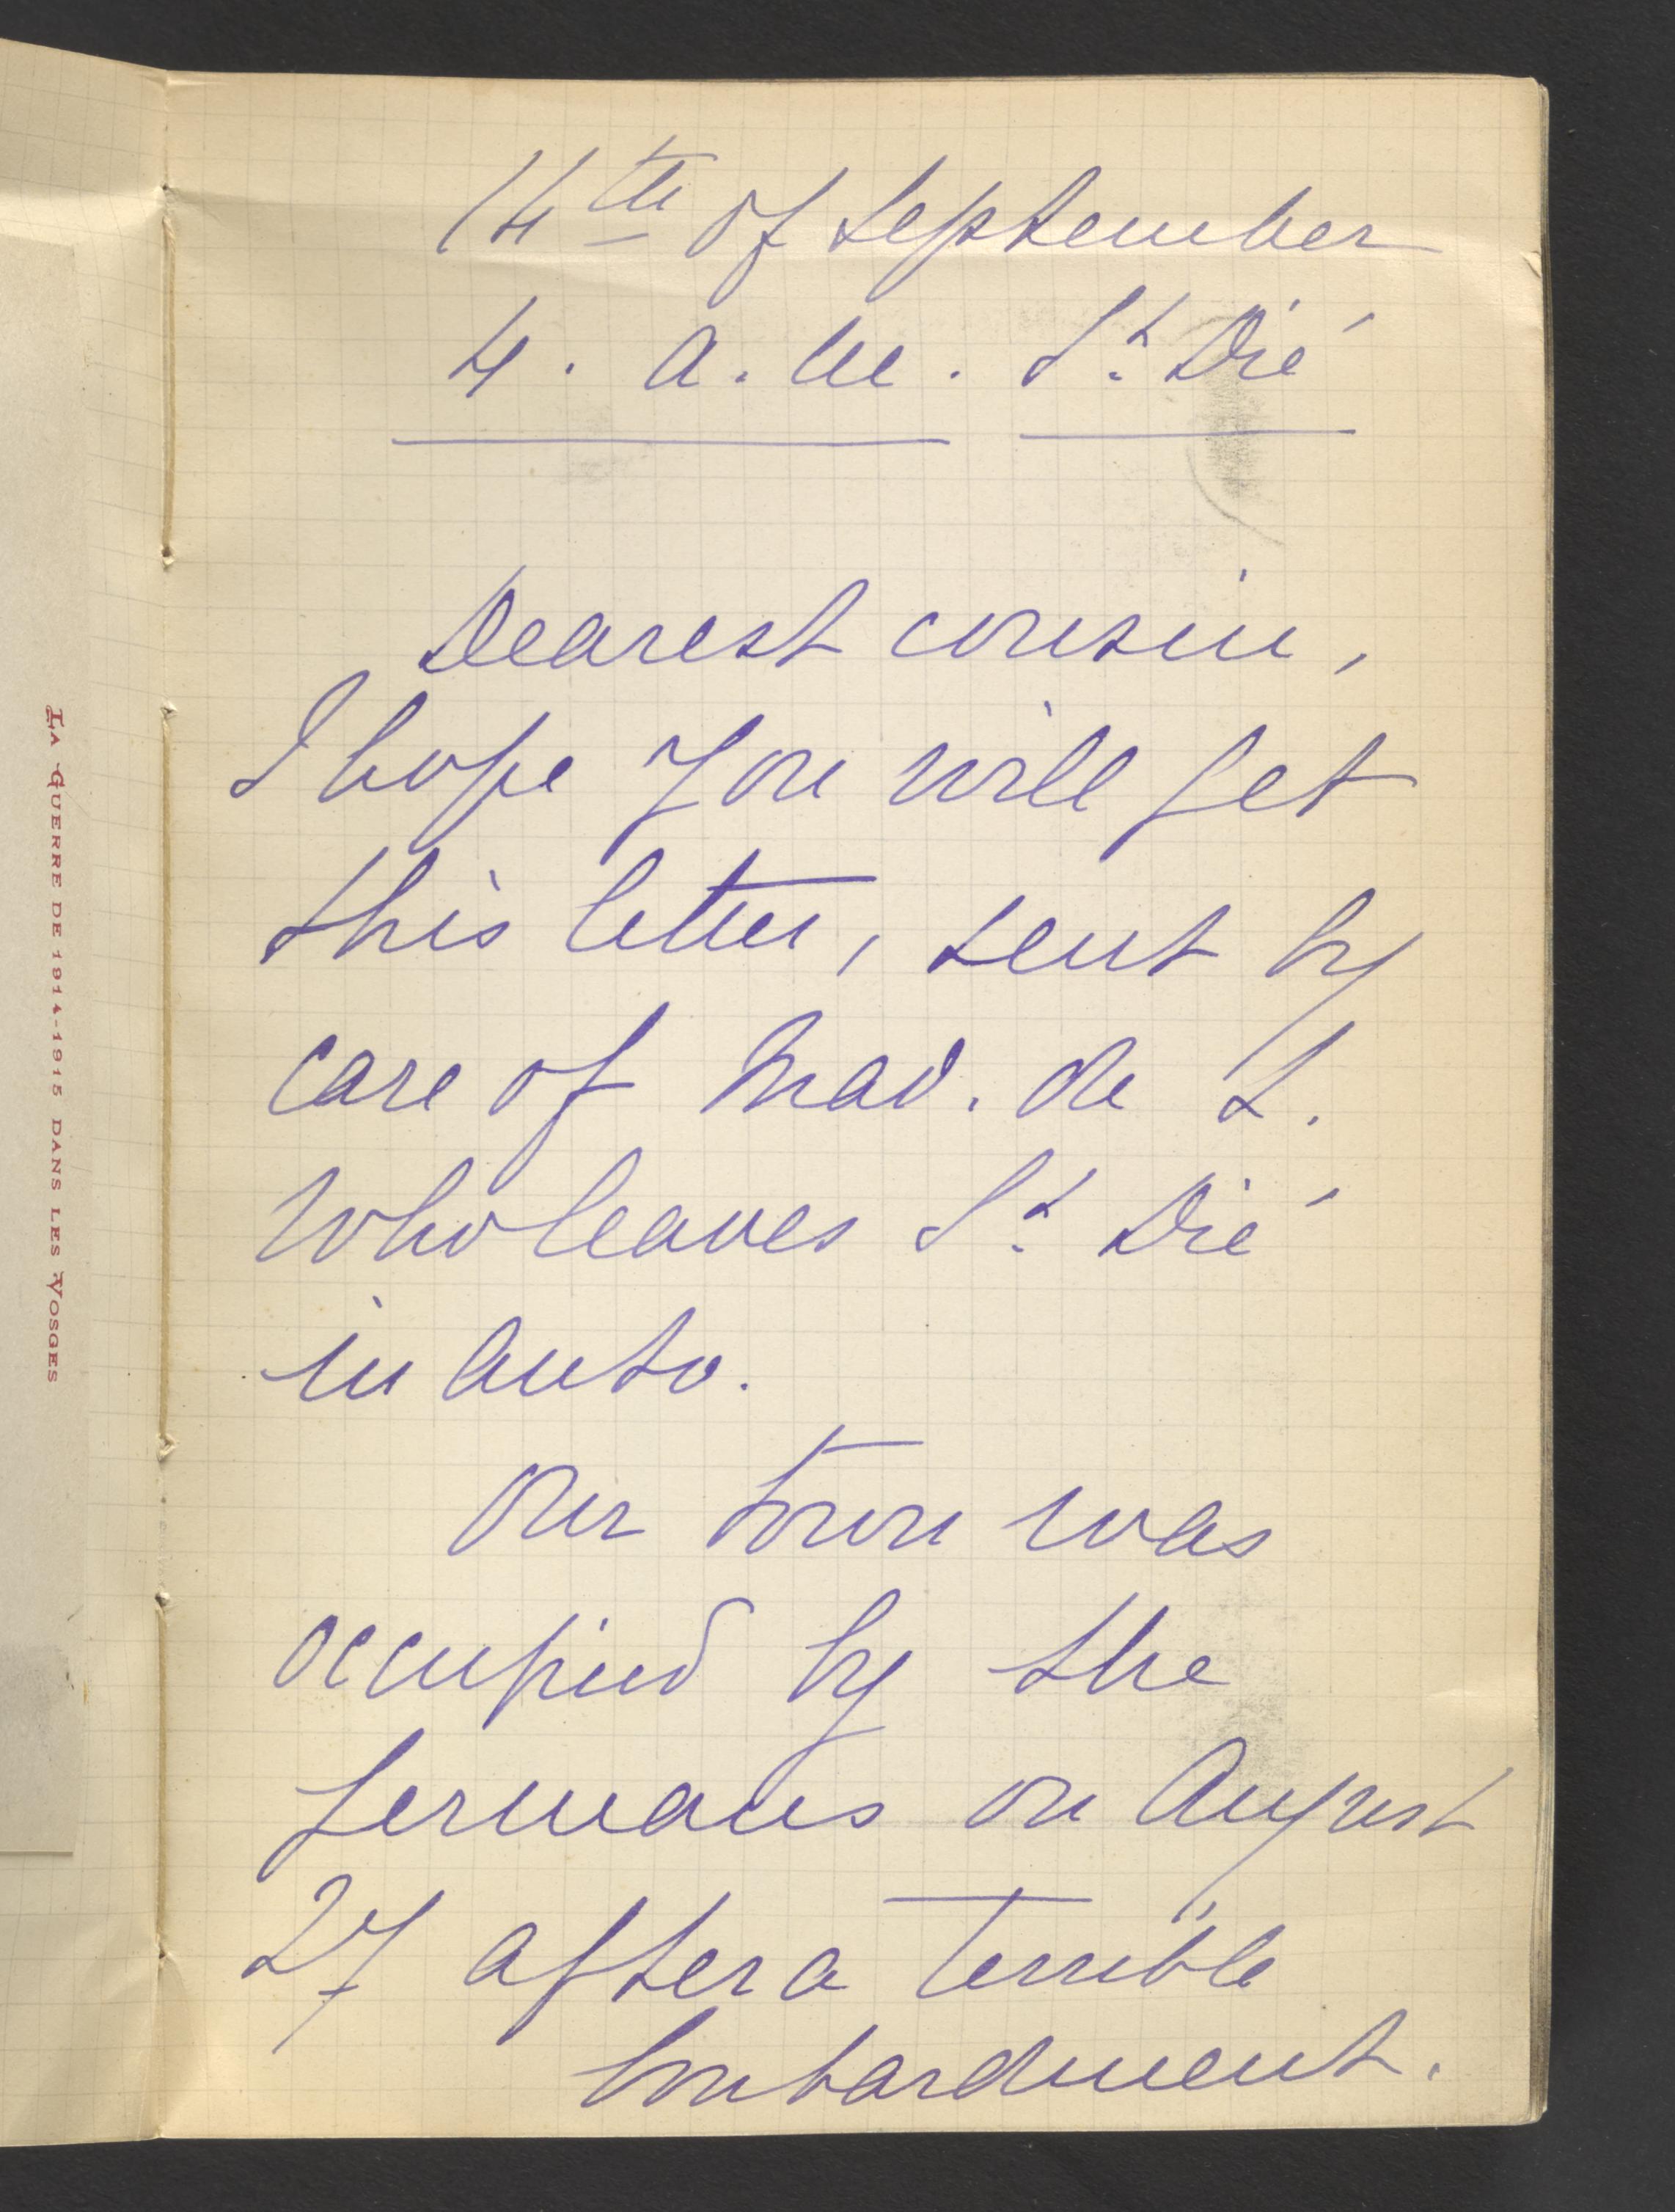 LA GUERRE DE 1914-1915 DANS LES VOSGES
14th of September
4. a.m. St. Dié
Dearest cousin,
I hope you will get
this letter, sent by
care of Mad. de L.
who leaves St. Dié
in auto.
Our town was
occupied by the
Germans on August
27 after a terrible
bombardment.